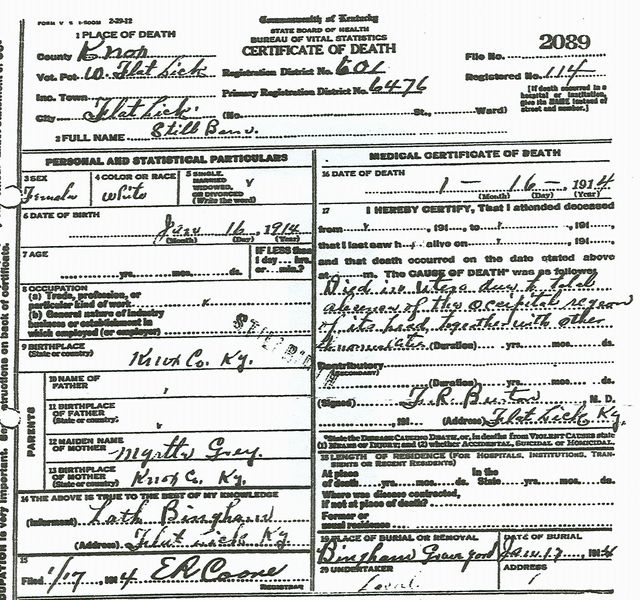 FORM V S 1-500M 2-29-12
Commonwealth of Kentucky
STATE BOARD OF HEALTH
BUREAU OF VITAL STATISTICS
CERTIFICATE OF DEATH
1 PLACE OF DEATH
County Knox
Vot. Pct. W. Flat Lick Registration District No. 601
Inc. Town Primary Registration District No. 6476
City Flat Lick (No. St., Ward)
File No. 2089
Registered No. 114
[If death occurred in a
hospital or institution,
give its NAME instead of
street and number.]
2 FULL NAME Still Born.
PERSONAL AND STATISTICAL PARTICULARS
3 SEX
Female
4 COLOR OR RACE
White
5 SINGLE,
MARRIED
WIDOWED,
OR DIVORCED
(Write the word)
6 DATE OF BIRTH
Jan 16, 1914
(Month) (Day) (Year)
7 AGE
yrs. mos. ds.
IF LESS than
1 day hrs.
or min.?
8 OCCUPATION
(a) Trade, profession, or
particular kind of work
(b) General nature of industry
business or establishment in
which employed (or employer)
STILLBORN
9 BIRTHPLACE
(State or country)
Knox Co. Ky.
PARENTS
10 NAME OF
FATHER
11 BIRTHPLACE
OF FATHER
(State or country)
12 MAIDEN NAME
OF MOTHER Myrtle Gray.
13 BIRTHPLACE
OF MOTHER
(State or country)
Knox Co. Ky.
14 THE ABOVE IS TRUE TO THE BEST OF MY KNOWLEDGE
(Informant) Bingham
(Address) Flat Lick Ky
15
Filed 1/17, 1914 E R
REGISTRAR
MEDICAL CERTIFICATE OF DEATH
16 DATE OF DEATH
1 - 16 - , 1914
(Month) (Day) (Year)
17 I HEREBY CERTIFY, That I attended deceased
from , 191 , to , 191 ,
that I last saw h alive on , 191 ,
and that death occurred on the date stated above
at m. The CAUSE OF DEATH* was as follows:
Died in Utero due to total
absence of the occipital region
of its head, together with other
(Duration) yrs. mos. ds.
Contributory
(SECONDARY)
(Duration) yrs. mos. ds.
(Signed) F. R. Burton M. D.
, 191 (Address) Flat Lick Ky.
*State the DISEASE CAUSING DEATH, or, in deaths from VIOLENT CAUSES state
(1) MEANS OF INJURY; and (2) whether ACCIDENTAL, SUICIDAL or HOMICIDAL.
18 LENGTH OF RESIDENCE (FOR HOSPITALS, INSTITUTIONS, TRANSIENTS
OR RECENT RESIDENTS)
At place In the
of death yrs. mos. ds. State yrs. mos. ds.
Where was disease contracted,
if not at place of death?
Former or
usual residence
19 PLACE OF BURIAL OR REMOVAL
Bingham Graveyard
DATE OF BURIAL
Jan 17, 1914
20 UNDERTAKER
ADDRESS